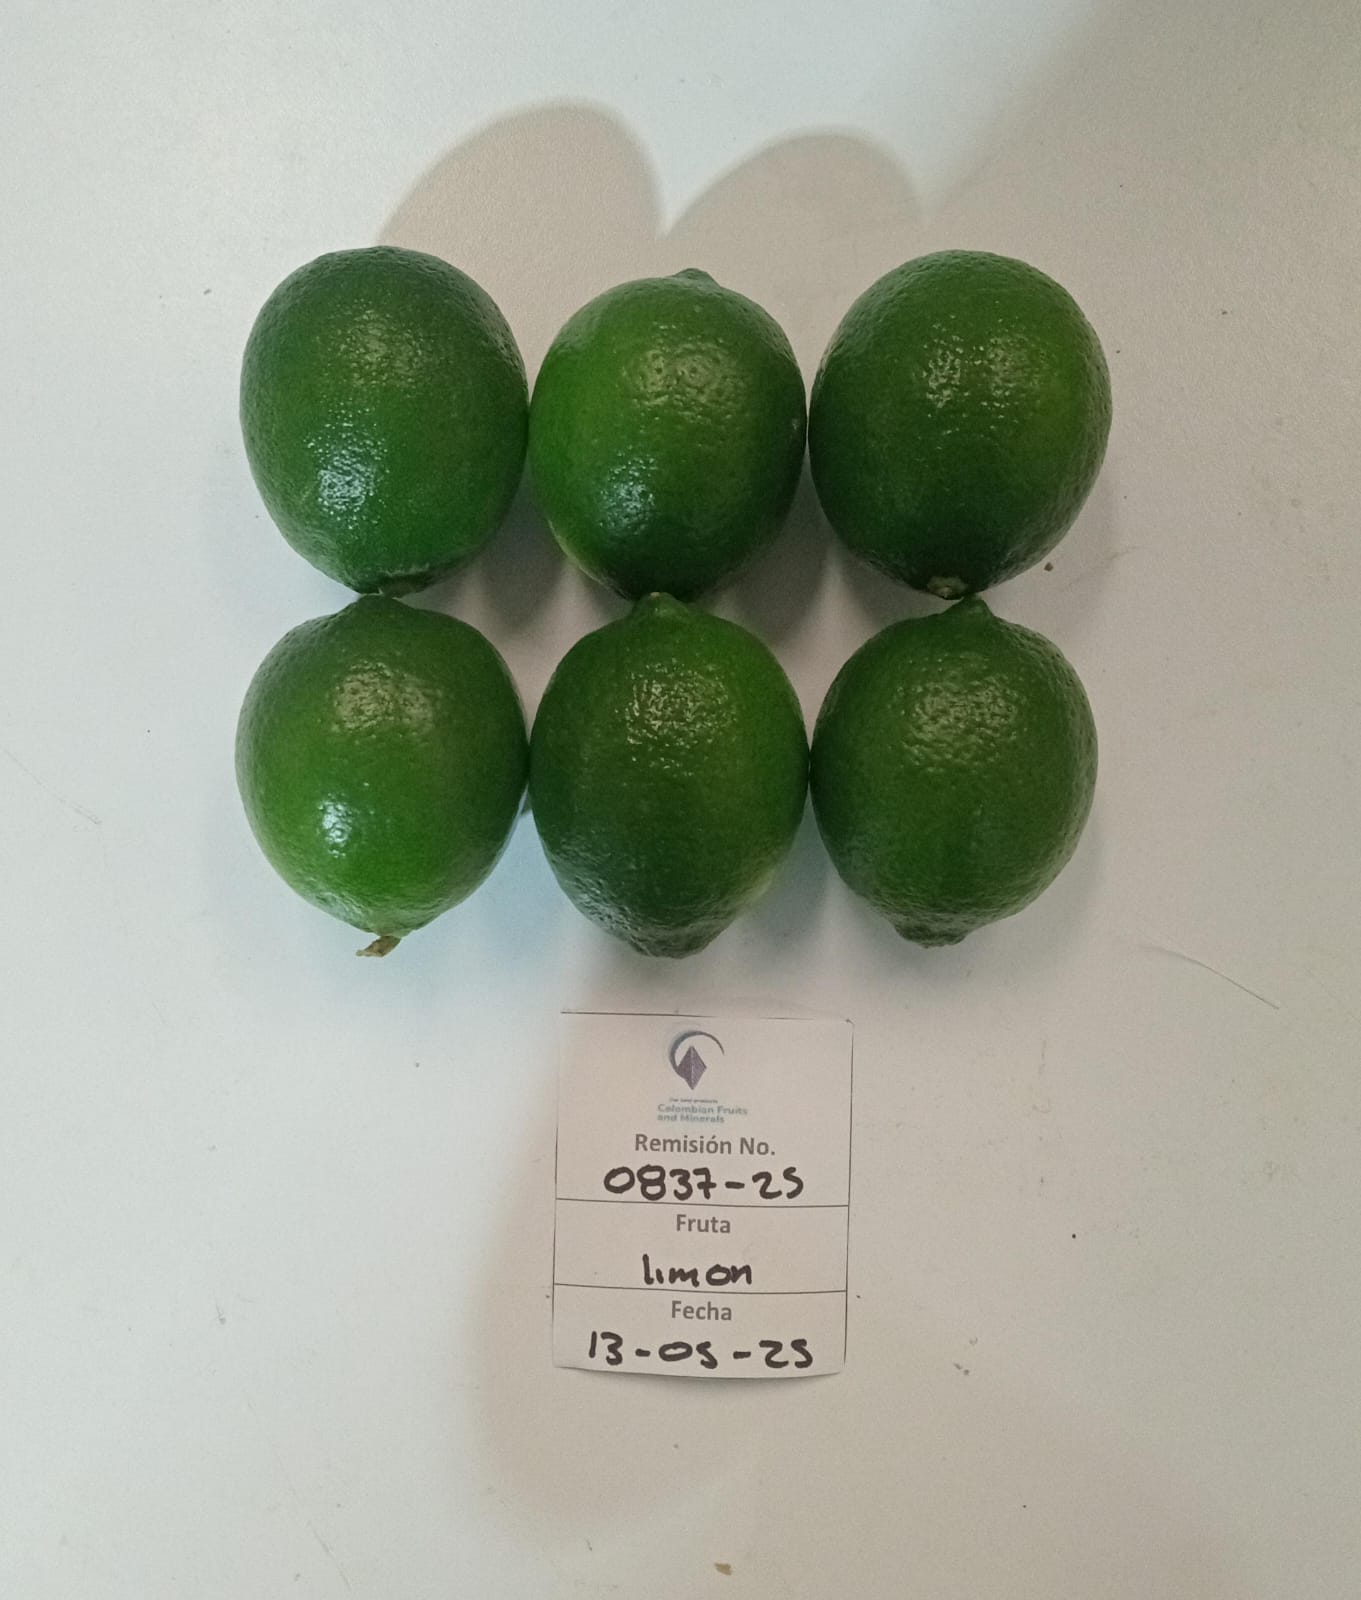 Our best products
Colombian Fruits
and Minerals
Remisión No.
0837-25
Fruta
limon
Fecha
13-05-25